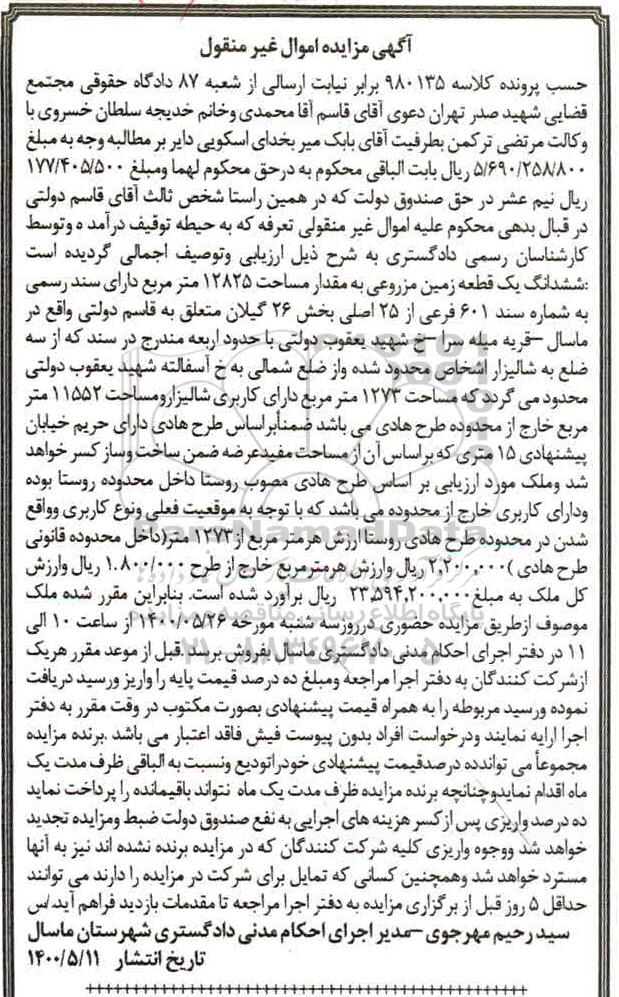 آگهی مزایده اموال غیر منقول
حسب پرونده کلاسه ۹۸۰۱۳۵ برابر نیابت ارسالی از شعبه ۸۷ دادگاه حقوقی مجتمع
قضایی شهید صدر تهران دعوی آقای قاسم آقا محمدی وخانم خدیجه سلطان خسروی با
وکالت مرتضی ترکمن بطرفیت آقای بابک میر بخدای اسکویی دایر بر مطالبه وجه به مبلغ
۵/۶۹۰/۲۵۸/۸۰۰ ریال بابت الباقی محکوم به درحق محکوم لهما ومبلغ ۱۷۷/۴۰۵/۵۰۰
ریال نیم عشر در حق صندوق دولت که در همین راستا شخص ثالث آقای قاسم دولتی
در قبال بدهی محکوم علیه اموال غیر منقولی تعرفه که به حیطه توقیف درآمد ه وتوسط
کارشناسان رسمی دادگستری به شرح ذیل ارزیابی وتوصیف اجمالی گردیده است
:ششدانگ یک قطعه زمین مزروعی به مقدار مساحت ۱۲۸۲۵ متر مربع دارای سند رسمی
به شماره سند ۶۰۱ فرعی از ۲۵ اصلی بخش ۲۶ گیلان متعلق به قاسم دولتی واقع در
ماسال –قریه میله سرا –خ شهید یعقوب دولتی با حدود اربعه مندرج در سند که از سه
ضلع به شالیزار اشخاص محدود شده واز ضلع شمالی به خ آسفالته شهید یعقوب دولتی
محدود می گردد که مساحت ۱۲۷۳ متر مربع دارای کاربری شالیزارومساحت ۱۱۵۵۲ متر
مربع خارج از محدوده طرح هادی می باشد ضمناًبراساس طرح هادی دارای حریم خیابان
پیشنهادی ۱۵ متری که براساس آن از مساحت مفیدعرضه ضمن ساخت وساز کسر خواهد
شد وملک مورد ارزیابی بر اساس طرح هادی مصوب روستا داخل محدوده روستا بوده
ودارای کاربری خارج از محدوده می باشد که با توجه به موقعیت فعلی ونوع کاربری وواقع
شدن در محدوده طرح هادی روستا ارزش هرمتر مربع از ۱۲۷۳ متر(داخل محدوده قانونی
طرح هادی )۲,۲۰۰,۰۰۰ ریال وارزش هرمترمربع خارج از طرح ۱.۸۰۰/۰۰۰ ریال وارزش
کل ملک به مبلغ ۲۳,۵۹۴,۲۰۰,۰۰۰ ریال برآورد شده است. بنابراین مقرر شده ملک
موصوف ازطریق مزایده حضوری درروزسه شنبه مورخه ۱۴۰۰/۰۵/۲۶ از ساعت ۱۰ الی
۱۱ در دفتر اجرای احکام مدنی دادگستری ماسال بفروش برسد .قبل از موعد مقرر هریک
ازشرکت کنندگان به دفتر اجرا مراجعه ومبلغ ده درصد قیمت پایه را واریز ورسید دریافت
نموده ورسید مربوطه را به همراه قیمت پیشنهادی بصورت مکتوب در وقت مقرر به دفتر
اجرا ارایه نمایند ودرخواست افراد بدون پیوست فیش فاقد اعتبار می باشد .برنده مزایده
مجموعاً می توانده ده درصدقیمت پیشنهادی خودراتودیع ونسبت به الباقی ظرف مدت یک
ماه اقدام نمایدوچنانچه برنده مزایده ظرف مدت یک ماه نتواند باقیمانده را پرداخت نماید
ده درصد واریزی پس از کسر هزینه های اجرایی به نفع صندوق دولت ضبط ومزایده تجدید
خواهد شد ووجوه واریزی کلیه شرکت کنندگان که در مزایده برنده نشده اند نیز به آنها
مسترد خواهد شد وهمچنین کسانی که تمایل برای شرکت در مزایده را دارند می توانند
حداقل ۵ روز قبل از برگزاری مزایده به دفتر اجرا مراجعه تا مقدمات بازدید فراهم آید./س
سید رحیم مهرجوی –مدیر اجرای احکام مدنی دادگستری شهرستان ماسال
تاریخ انتشار ۱۴۰۰/۵/۱۱